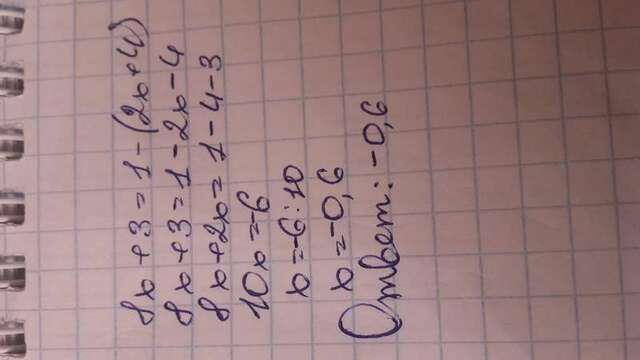 8x+3=1-(2x+4)
8x+3=1-2x-4
8x+2x=1-4-3
10x=-6
x=-6:10
x=-0,6
Ответ: -0,6